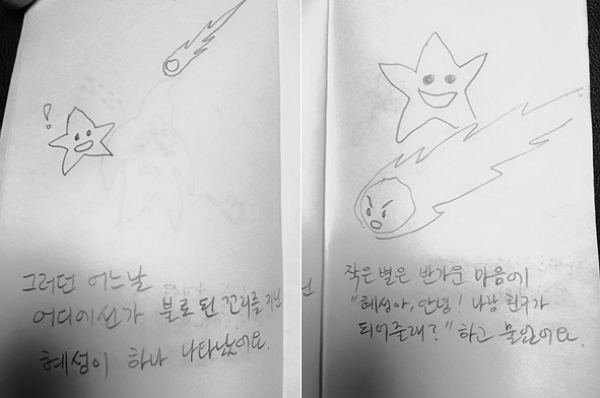 그러던 어느날
어디에선가 불로 된 꼬리를 지닌
혜성이 하나 나타났어요.
작은 별은 반가운 마음에
"혜성아, 안녕! 나랑 친구가
되어줄래?" 하고 물었어요.